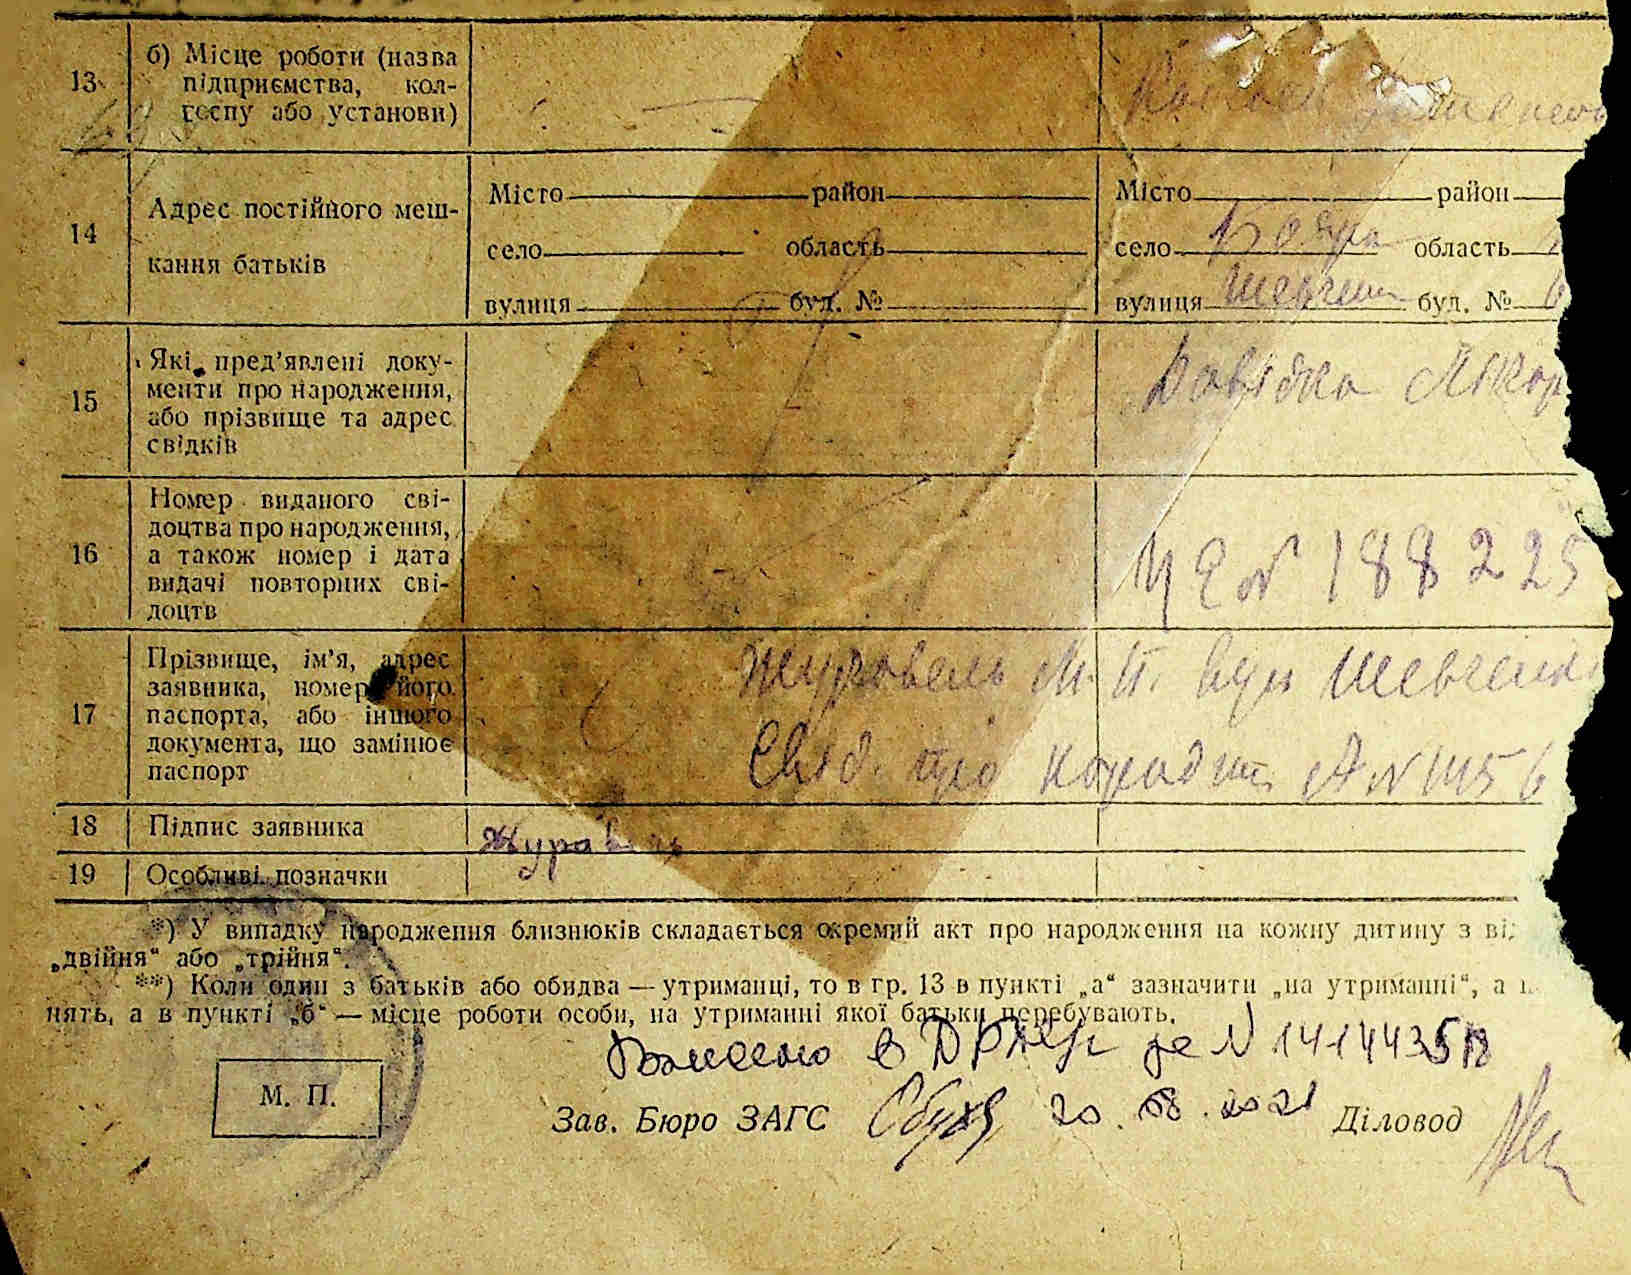 13 б) Місце роботи (назва
підприємства, кол-
госпу або установи)
14 Адрес постійного меш-
кання батьків
Місто район Місто район
село область село область
вулиця буд. № вулиця Шевчен буд. №
15 Які пред’явлені доку-
менти про народження,
або прізвище та адрес
свідків
Довідка Лікар
16 Номер виданого сві-
доцтва про народження,
а також номер і дата
видачі повторних сві-
доцтв
№ 188225
17 Прізвище, ім’я, адрес
заявника, номер його
паспорта, або іншого
документа, що замінює
паспорт
Журавель М. П. вул Шевченк
Свід. про народж А № 11156
18 Підпис заявника Журавель
19 Особливі позначки
*) У випадку народження близнюків складається окремий акт про народження на кожну дитину з ві
„двійня“ або „трійня“.
**) Коли один з батьків або обидва — утриманці, то в гр. 13 в пункті „а“ зазначити „на утриманні“, а
нять, а в пункті „б“ — місце роботи особи, на утриманні якої батьки перебувають.
Внесено в ДРАЦС № 14144351
М. П.
Зав. Бюро ЗАГС 20.08.2021 Діловод